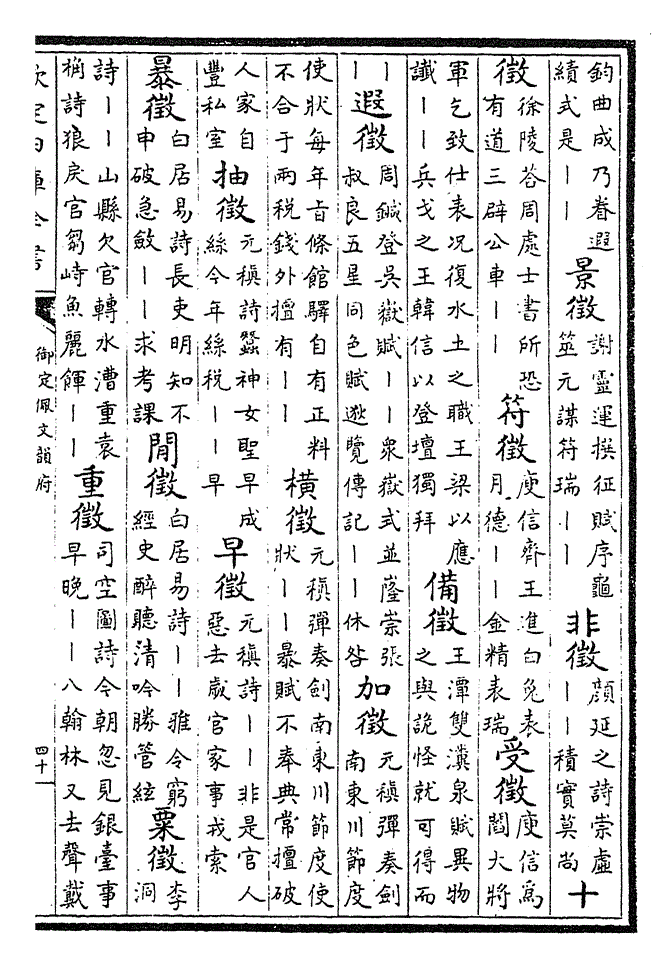 鈞曲成乃眷遐績式是｜｜景徵謝靈運撰征賦序龜筮元謀符瑞｜｜非徵顏延之詩崇虛｜｜積實莫尚十
徵徐陵荅周處士書所恐有道三辟公車｜｜符徵庾信齊王進白兔表月德｜｜金精表瑞受徵庾信爲閻大將
軍乞致仕表况復水土之職王梁以應讖｜｜兵戈之王韓信以登壇獨拜備徵王潭雙瀵泉賦異物之與詭怪就可得而
｜｜遐徵周鍼登吳嶽賦｜｜衆嶽式並崇張叔良五星同色賦逖覽傳記｜｜休咎加徵元稹彈奏劍南東川節度
使狀每年旨條館驛自有正料不合于兩税錢外擅有｜｜橫徵元稹彈奏劍南東川節度使狀｜｜暴賦不奉典常擅破
人家自豐私室抽徵元稹詩蠶神女聖早成絲今年絲税｜｜早早徵元稹詩｜｜非是官人惡去歲官家事戎索
暴徵白居易詩長吏明知不申破急斂｜｜求考課閒徵白居易詩｜｜雅令窮經史醉聽清吟勝管絃粟徵李洞
詩｜｜山縣欠官轉水漕重袁桷詩狼戾官芻峙魚麗餫｜｜重徵司空圖詩今朝忽見銀臺事早晚｜｜八翰林又去聲戴
欽定四庫全書
御定佩文韻府
四十一